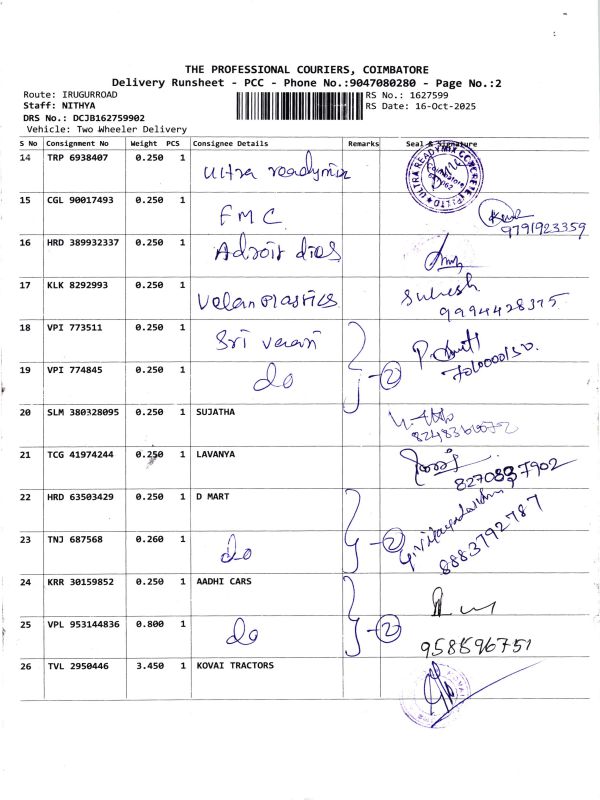 THE PROFESSIONAL COURIERS, COIMBATORE
Delivery Runsheet - PCC - Phone No.:9047080280 - Page No.:2
Route: IRUGURROAD RS No.: 1627599
Staff: NITHYA RS Date: 16-Oct-2025
DRS No.: DCJB162759902
Vehicle: Two Wheeler Delivery
S No Consignment No Weight PCS Consignee Details Remarks Seal & Signature
14 TRP 6938407 0.250 1 Ultra readymix
15 CGL 90017493 0.250 1 FMC 9791923359
16 HRD 389932337 0.250 1 Adroit dies
17 KLK 8292993 0.250 1 Velan Plastics Suresh
9994428375
18 VPI 773511 0.250 1 Sri
19 VPI 774845 0.250 1 do 2
20 SLM 380328095 0.250 1 SUJATHA
21 TCG 41974244 0.250 1 LAVANYA
22 HRD 63503429 0.250 1 D MART
8883792787
23 TNJ 687568 0.260 1 do 2
24 KRR 30159852 0.250 1 AADHI CARS
25 VPL 953144836 0.800 1 do 2 958596751
26 TVL 2950446 3.450 1 KOVAI TRACTORS